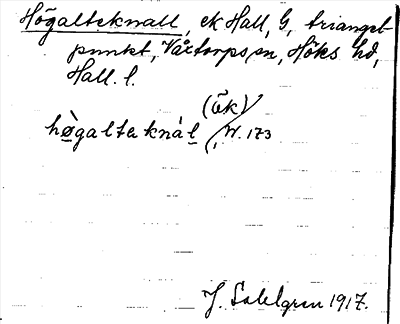 Högalteknall, ek Hall, G, triangel-
punkt, Våxtorps sn, Höks hd,
Hall. l.
(Ek)
høgalta knál, W. 173
J. Sahlgren 1917.